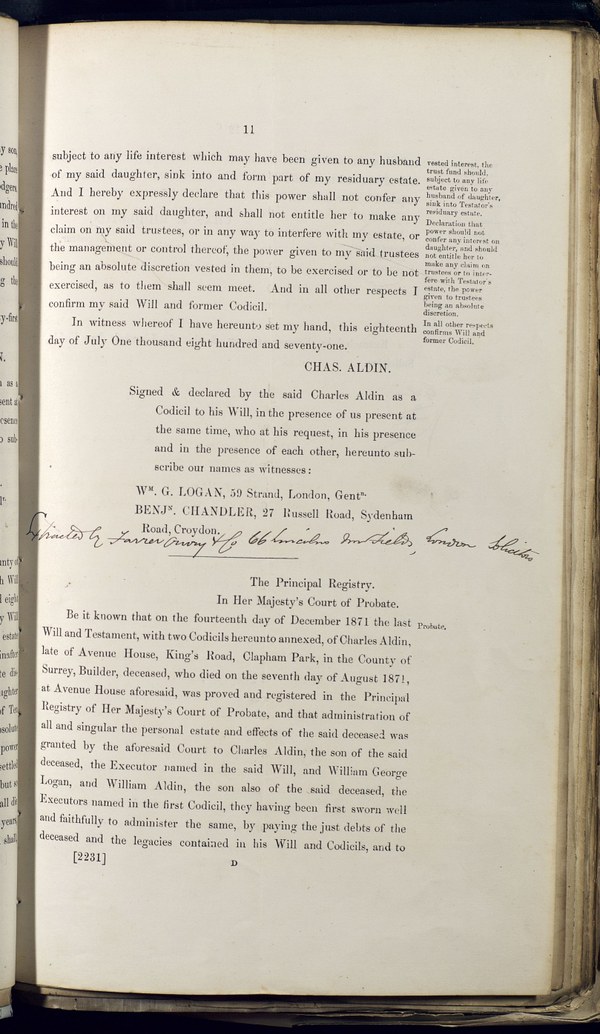 11
subject to any life interest which may have been given to any husband
of my said daughter, sink into and form part of my residuary estate.
And I hereby expressly declare that this power shall not confer any
interest on my said daughter, and shall not entitle her to make any
claim on my said trustees, or in any way to interfere with my estate, or
the management or control thereof, the power given to my said trustees
being an absolute discretion vested in them, to be exercised or to be not
exercised, as to them shall seem meet. And in all other respects I
confirm my said Will and former Codicil.
In witness whereof I have hereunto set my hand, this eighteenth
day of July One thousand eight hundred and seventy-one.
CHAS. ALDIN.
vested interest, the
trust fund should,
subject to any life
estate given to any
husband of daughter,
sink into Testator's
residuary estate.
Declaration that
power should not
confer any interest on
daughter, and should
not entitle her to
make any claim on
trustees or to inter-
fere with Testator's
estate, the power
given to trustees
being an absolute
discretion.
In all other respects
confirms Will and
former Codicil.
Signed & declared by the said Charles Aldin as a
Codicil to his Will, in the presence of us present at
the same time, who at his request, in his presence
and in the presence of each other, hereunto sub-
scribe our names as witnesses:
WM. G. LOGAN, 59 Strand, London, Gentn.
BENJN. CHANDLER, 27 Russell Road, Sydenham
Road, Croydon.
Extracted by Farrer Ouvry & Co 66 Lincolns Inn Fields, London Solicitors
The Principal Registry.
In Her Majesty's Court of Probate.
Be it known that on the fourteenth day of December 1871 the last
Will and Testament, with two Codicils hereunto annexed, of Charles Aldin,
late of Avenue House, King's Road, Clapham Park, in the County of
Surrey, Builder, deceased, who died on the seventh day of August 1871,
at Avenue House aforesaid, was proved and registered in the Principal
Registry of Her Majesty's Court of Probate, and that administration of
all and singular the personal estate and effects of the said deceased was
granted by the aforesaid Court to Charles Aldin, the son of the said
deceased, the Executor named in the said Will, and William George
Logan, and William Aldin, the son also of the said deceased, the
Executors named in the first Codicil, they having been first sworn well
and faithfully to administer the same, by paying the just debts of the
deceased and the legacies contained in his Will and Codicils, and to
Probate.
[2231]
D